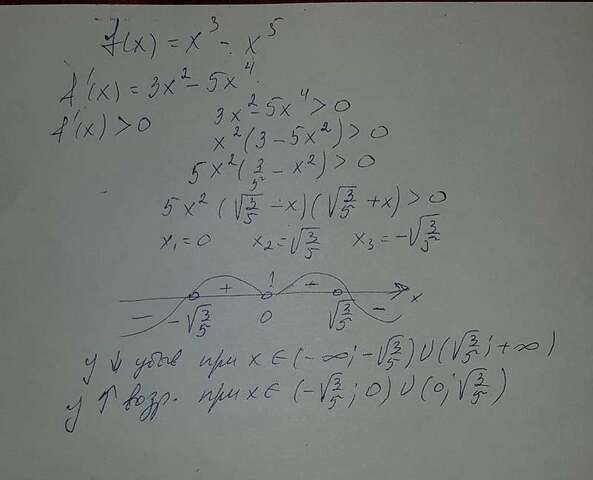 f(x) = x³ - x⁵
f'(x) = 3x² - 5x⁴
f'(x) > 0 3x² - 5x⁴ > 0
x²(3 - 5x²) > 0
5x²(3/5 - x²) > 0
5x²(√(3/5) - x)(√(3/5) + x) > 0
x₁ = 0 x₂ = √(3/5) x₃ = -√(3/5)
- + ! + - x
-√(3/5) 0 √(3/5)
y ↓ убыв при x ∈ (-∞; -√(3/5)) ∪ (√(3/5); +∞)
y ↑ возр. при x ∈ (-√(3/5); 0) ∪ (0; √(3/5))